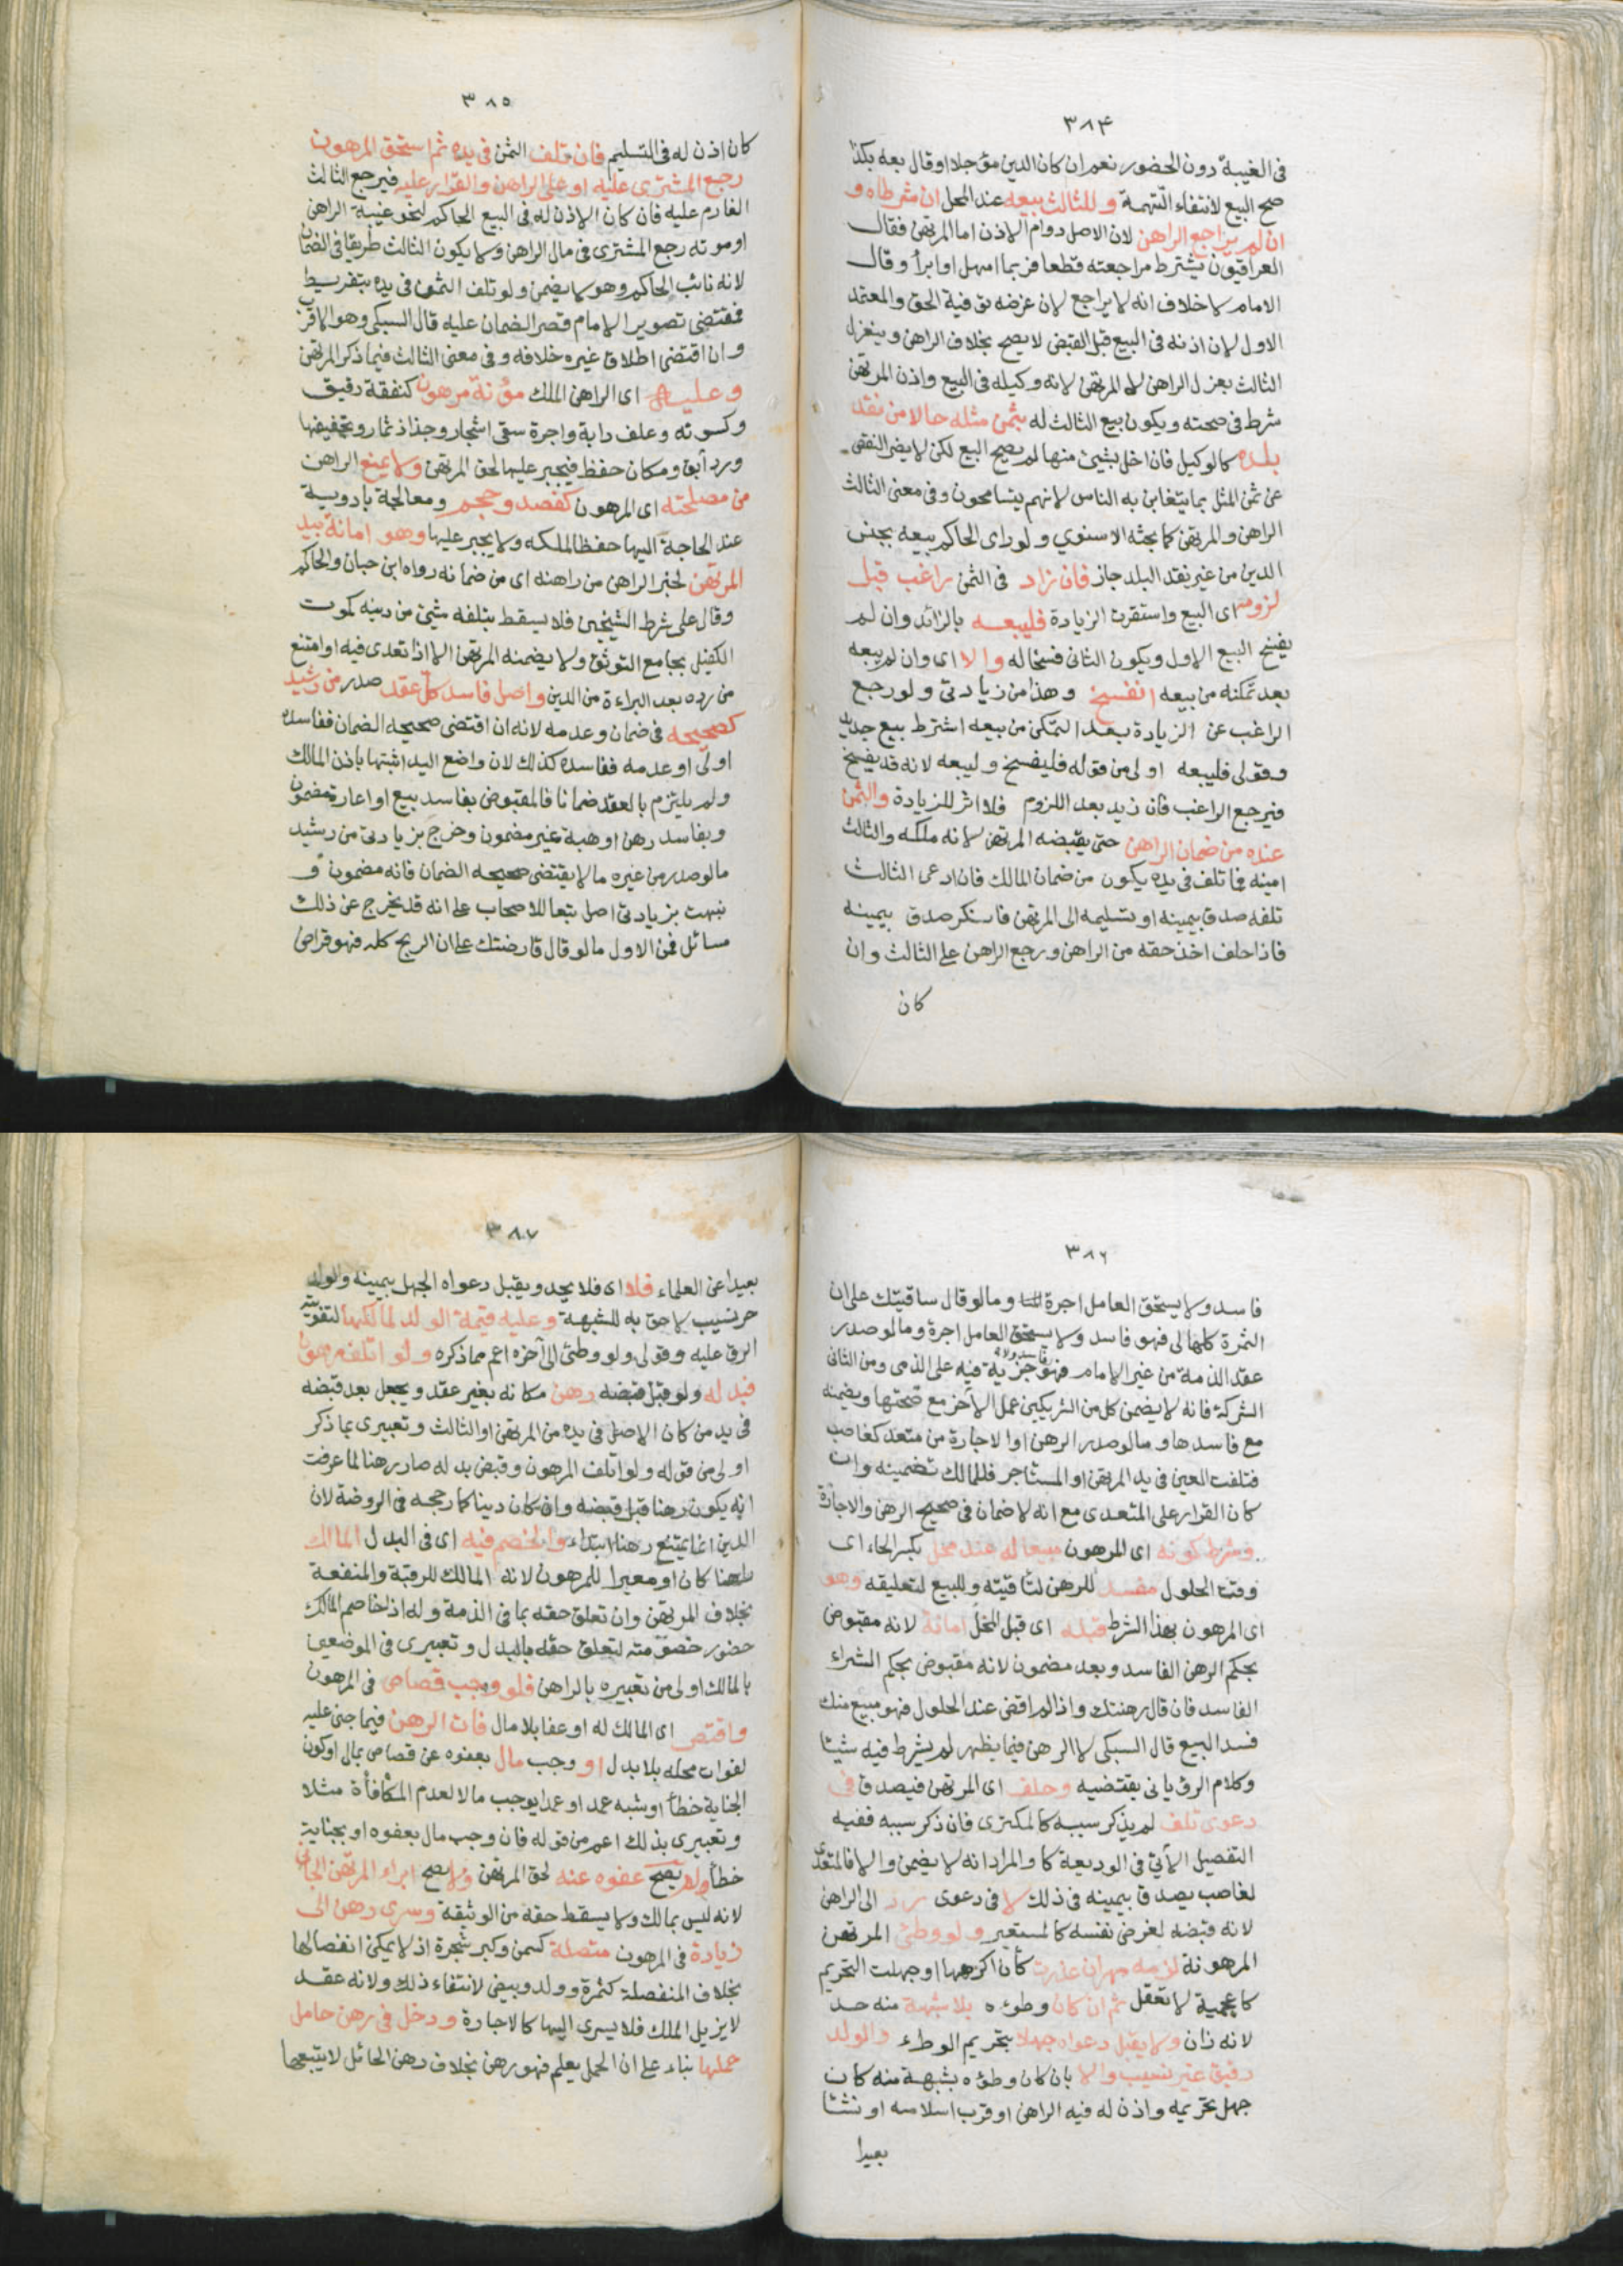 ٣٨٤
فى الغيبة دون الحضور نعم ان كان الدين مؤجلا او قال بعه بكذا
صح البيع لانتفاء التهمة وللثالث بيعه عند المحل ان شرطاه و
ان لم يراجع الراهن لان الاصل دوام الاذن اما المرتهن فقال
العراقيون يشترط مراجعته قطعا فربما امهل او ابرأ وقال
الامام لا خلاف انه لا يراجع لان غرضه توفية الحق والمعتمد
الاول لان اذنه فى البيع قبل القبض لا يصح بخلاف الراهن وينعزل
الثالث بعزل الراهن لا المرتهن لانه وكيله فى البيع واذن المرتهن
شرط فى صحته ويكون بيع الثالث له بثمن مثله حالا من نقد
بلده كالوكيل فان اخل بشئ منها لم يصح البيع لكن لا يضر النقص
عن ثمن المثل بما يتغابن به الناس لانهم يتسامحون وفى معنى الثالث
الراهن والمرتهن كما بحثه الاسنوي ولو راى الحاكم بيعه بجنس
الدين من غير نقد البلد جاز فان زاد فى الثمن راغب قبل
لزومه اى البيع واستقرت الزيادة فليبعه بالزائد وان لم
يفسخ البيع الاول ويكون الثانى فسخا له والا اى وان لم يبعه
بعد تمكنه من بيعه انفسخ وهذا من زيادتى ولو رجع
الراغب عن الزيادة بعد التمكن من بيعه اشترط بيع جديد
وقولى فليبعه اولى من قوله فليفسخ وليبعه لانه قد يفسخ
فيرجع الراغب فان زيد بعد اللزوم فلا اثر للزيادة والثمن
عنده من ضمان الراهن حتى يقبضه المرتهن لانه ملكه والثالث
امينه فما تلف فى يده يكون من ضمان المالك فان ادعى الثالث
تلفه صدق بيمينه او تسليمه الى المرتهن فانكر صدق بيمينه
فاذا حلف اخذ حقه من الراهن ورجع الراهن على الثالث وان
كان
٣٨٥
كان اذن له فى التسليم فان تلف الثمن فى يده ثم استحق المرهون
رجع المشترى عليه او على الراهن والقرار عليه فيرجع الثالث
الغارم عليه فان كان الاذن له فى البيع الحاكم لنحو غيبة الراهن
او موته رجع المشترى فى مال الراهن ولا يكون الثالث طريقا فى الضمان
لانه نائب الحاكم وهو لا يضمن ولو تلف الثمن فى يده بتفريط
فمقتضى تصوير الامام قصر الضمان عليه قال السبكى وهو الاقرب
وان اقتضى اطلاق غيره خلافه وفى معنى الثالث فيما ذكر المرتهن
وعليه اى الراهن الملك مؤنة مرهون كنفقة رقيق
وكسوته وعلف دابة واجرة سقى اشجار وجذاذ ثمار وتجفيفها
ورد آبق ومكان حفظ فيجبر عليها لحق المرتهن ولا يمنع الراهن
من مصلحته اى المرهون كفصد وحجم ومعالجة بادوية
عند الحاجة اليها حفظا لملكه ولا يجبر عليها وهو امانة بيد
المرتهن لخبر الراهن من راهنه اى من ضمانه رواه ابن حبان والحاكم
وقال على شرط الشيخين فلا يسقط بتلفه شئ من دينه كموت
الكفيل بجامع التوثق ولا يضمنه المرتهن الا اذا تعدى فيه او امتنع
من رده بعد البراءة من الدين واصل فاسد كل عقد صدر من رشيد
كصحيحه فى ضمان وعدمه لانه ان اقتضى صحيحه الضمان ففاسده
اولى او عدمه ففاسده كذلك لان واضع اليد اثبتها باذن المالك
ولم يلتزم بالعقد ضمانا فالمقبوض بفاسد بيع او اعارة مضمون
وبفاسد رهن او هبة غير مضمون وخرج بزيادتى من رشيد
ما لو صدر من غيره ما لا يقتضى صحيحه الضمان فانه مضمون و
نبهت بزيادتى اصل تبعا للاصحاب على انه قد يخرج عن ذلك
مسائل فمن الاول ما لو قال قارضتك على ان الربح كله فهو قراض
٣٨٦
فاسد ولا يستحق العامل اجرة وما لو قال ساقيتك على ان
الثمرة كلها لى فهو فاسد ولا يستحق العامل اجرة وما لو صدر
عقد الذمة من غير الامام فهو فاسد ولا جزية فيه على الذمى ومن الثانى
الشركة فانه لا يضمن كل من الشريكين عمل الآخر مع صحتها ويضمنه
مع فاسدها وما لو صدر الرهن او الاجارة من متعد كغاصب
فتلفت العين فى يد المرتهن او المستاجر فللمالك تضمينه وان
كان القرار على المتعدى مع انه لا ضمان فى صحيح الرهن والاجارة
وشرط كونه اى المرهون مبيعا له عند محل بكسر الحاء اى
وقت الحلول مفسد للرهن لتاقيته وللبيع لتعليقه وهو
اى المرهون بهذا الشرط قبله اى قبل المحل امانة لانه مقبوض
بحكم الرهن الفاسد وبعد مضمون لانه مقبوض بحكم الشراء
الفاسد فان قال رهنتك واذا لم اقض عند الحلول فهو مبيع منك
فسد البيع قال السبكى لا الرهن فيما يظهر لم يشرط فيه شيئا
وكلام الرويانى يقتضيه وحلف اى المرتهن فيصدق فى
دعوى تلف لم يذكر سببه كالمكترى فان ذكر سببه ففيه
التفصيل الآتى فى الوديعة كا والمراد انه لا يضمن والا فالمتعدى
لغاصب يصدق بيمينه فى ذلك لا فى دعوى رد الى الراهن
لانه قبضه لغرض نفسه كالمستعير ولو وطئ المرتهن
المرهونة لزمه مهر ان عذرت كأن اكرهها او جهلت التحريم
كاعجمية لا تعقل ثم ان كان وطؤه بلا شبهة منه حد
لانه زان ولا يقبل دعواه جهلا بتحريم الوطء والولد
رقيق غير نسيب والا بان كان وطؤه بشبهة منه كان
جهل تحريمه واذن له فيه الراهن او قرب اسلامه او نشأ
بعيدا
٣٨٧
بعيدا عن العلماء فلا اى فلا يحد ويقبل دعواه الجهل بيمينه والولد
حر نسيب لاحق به للشبهة وعليه قيمة الولد لمالكها لتفويته
الرق عليه وقولى ولو وطئ الى آخره اعم مما ذكره ولو اتلف مرهون
فبدله ولو قبل قبضه رهن مكانه بغير عقد ويجعل بعد قبضه
فى يد من كان الاصل فى يده من المرتهن او الثالث وتعبيرى بما ذكر
اولى من قوله ولو اتلف المرهون وقبض بدله صار رهنا لما عرفت
انه يكون رهنا قبل قبضه وان كان دينا كما رجحه فى الروضة لان
الدين انما يمتنع رهنه ابتداء والخصم فيه اى فى البدل المالك
راهنا كان او معيرا للمرهون لانه المالك للرقبة والمنفعة
بخلاف المرتهن وان تعلق حقه بما فى الذمة وله اذا خاصم المالك
حضور خصومته لتعلق حقه بالبدل وتعبيرى فى الموضعين
بالمالك اولى من تعبيره بالراهن فلو وجب قصاص فى المرهون
واقتص اى المالك له او عفا بلا مال فات الرهن فيما جنى عليه
لفوات محله بلا بدل او وجب مال بعفوه عن قصاص بمال او كون
الجناية خطأ او شبه عمد او عمدا يوجب مالا لعدم المكافأة مثلا
وتعبيرى بذلك اعم من قوله فان وجب مال بعفوه او بجناية
خطأ ولم يصح عفوه عنه لحق المرتهن ولا يصح ابراء المرتهن الجانى
لانه ليس بمالك ولا يسقط حقه من الوثيقة وسرى رهن الى
زيادة فى المرهون متصلة كسمن وكبر شجرة اذ لا يمكن انفصالها
بخلاف المنفصلة كثمرة وولد وبيض لانتفاء ذلك ولانه عقد
لا يزيل الملك فلا يسرى اليها كالاجارة ودخل فى رهن حامل
حملها بناء على ان الحمل يعلم فهو رهن بخلاف رهن الحائل لا يتبعها